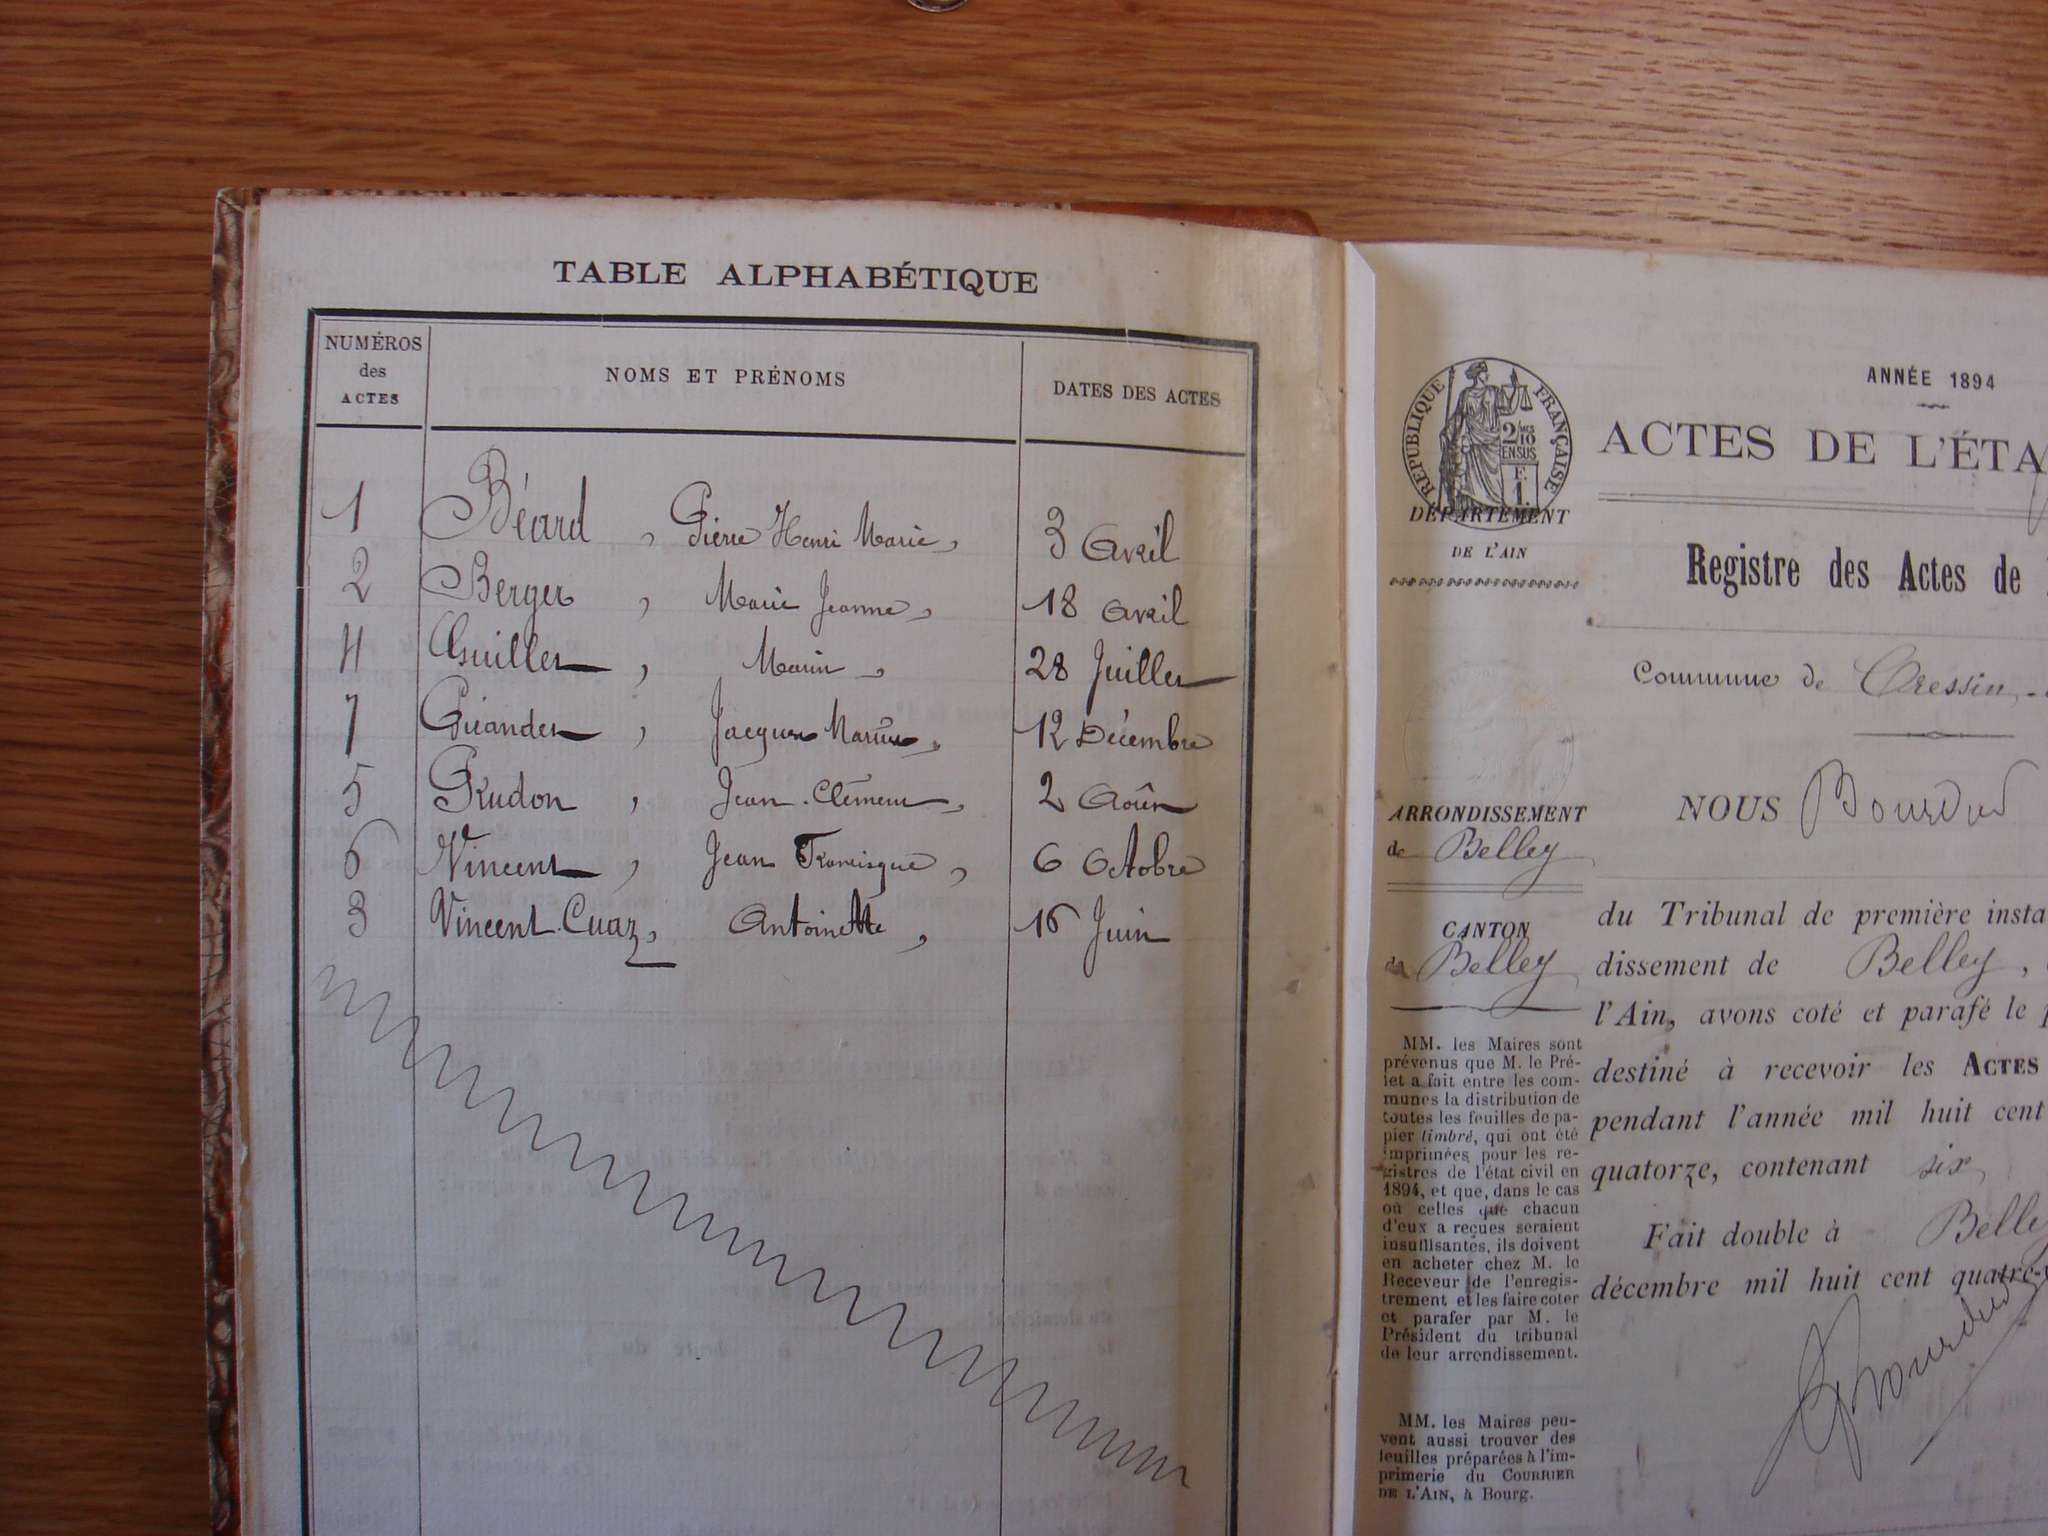 TABLE ALPHABÉTIQUE
NUMÉROS des ACTES NOMS ET PRÉNOMS DATES DES ACTES
1 Béard, Pierre Henri Marie, 3 Avril
2 Berger, Marie Jeanne, 18 Avril
4 Guillet, Marin, 28 Juillet
7 12 Décembre
5 Jean-Clément, 2 Août
6 Vincent, Jean Francisque, 6 Octobre
3 Vincent-Cuaz, Antoinette, 16 Juin
RÉPUBLIQUE FRANÇAISE
2/10 EN SUS
DÉPARTEMENT
DE L'AIN
ARRONDISSEMENT
de Belley
CANTON
de Belley
MM. les Maires sont
prévenus que M. le Pré-
fet a fait entre les com-
munes la distribution de
toutes les feuilles de pa-
pier timbré, qui ont été
imprimées pour les re-
gistres de l'état civil en
1894, et que, dans le cas
où celles que chacun
d'eux a reçues seraient
insuffisantes, ils doivent
en acheter chez M. le
Receveur de l'enregis-
trement et les faire coter
et parafer par M. le
Président du tribunal
de leur arrondissement.
MM. les Maires peu-
vent aussi trouver des
feuilles préparées à l'im-
primerie du COURRIER
DE L'AIN, à Bourg.
ANNÉE 1894
ACTES DE L'ÉTA
Registre des Actes de
Commune de Cressin-
NOUS
du Tribunal de première insta
dissement de Belley,
l'Ain, avons coté et parafé le
destiné à recevoir les ACTES
pendant l'année mil huit cent
quatorze, contenant six
Fait double à Belley
décembre mil huit cent quatre-